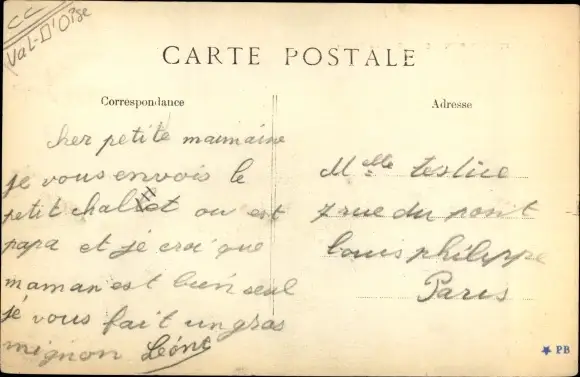 CC
Val-D'Oise
CARTE POSTALE
Correspondance
Adresse
cher petite mamaine
je vous envois le
petit chalet ou est
papa et je croi que
maman est bien seul
je vous fait un gras
mignon Léone
Melle
7 rue du pont
Louis philippe
Paris
PB